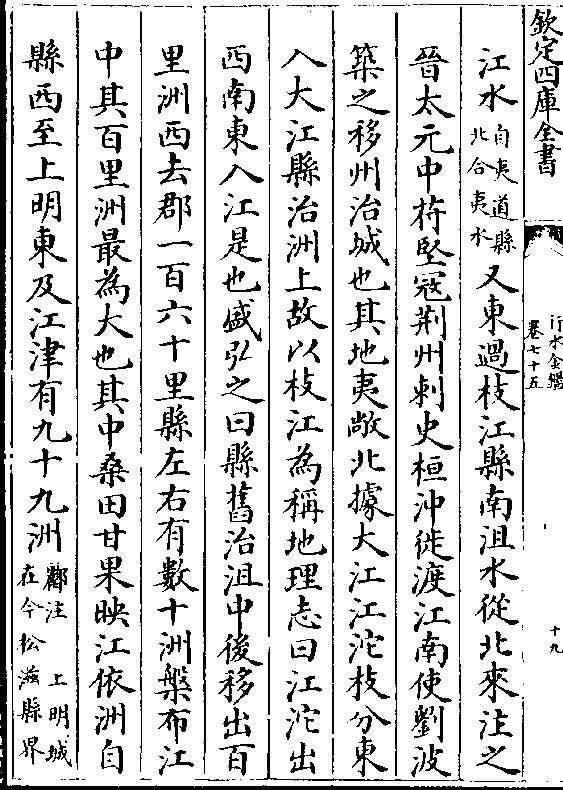 欽定四庫全書
行水金鑑
卷七十五
十九
江水自夷道縣北合夷水又東過枝江縣南沮水從北來注之
晉太元中苻堅冦荆州刺史桓沖徙渡江南使劉波
築之移州治城也其地夷敞北據大江江沱枝分東
入大江縣治洲上故以枝江為稱地理志曰江沱出
西南東入江是也盛弘之曰縣舊治沮中後移出百
里洲西去郡一百六十里縣左右有數十洲槃布江
中其百里洲最為大也其中桑田甘果映江依洲自
縣西至上明東及江津有九十九洲酈注 上明城在今松滋縣界